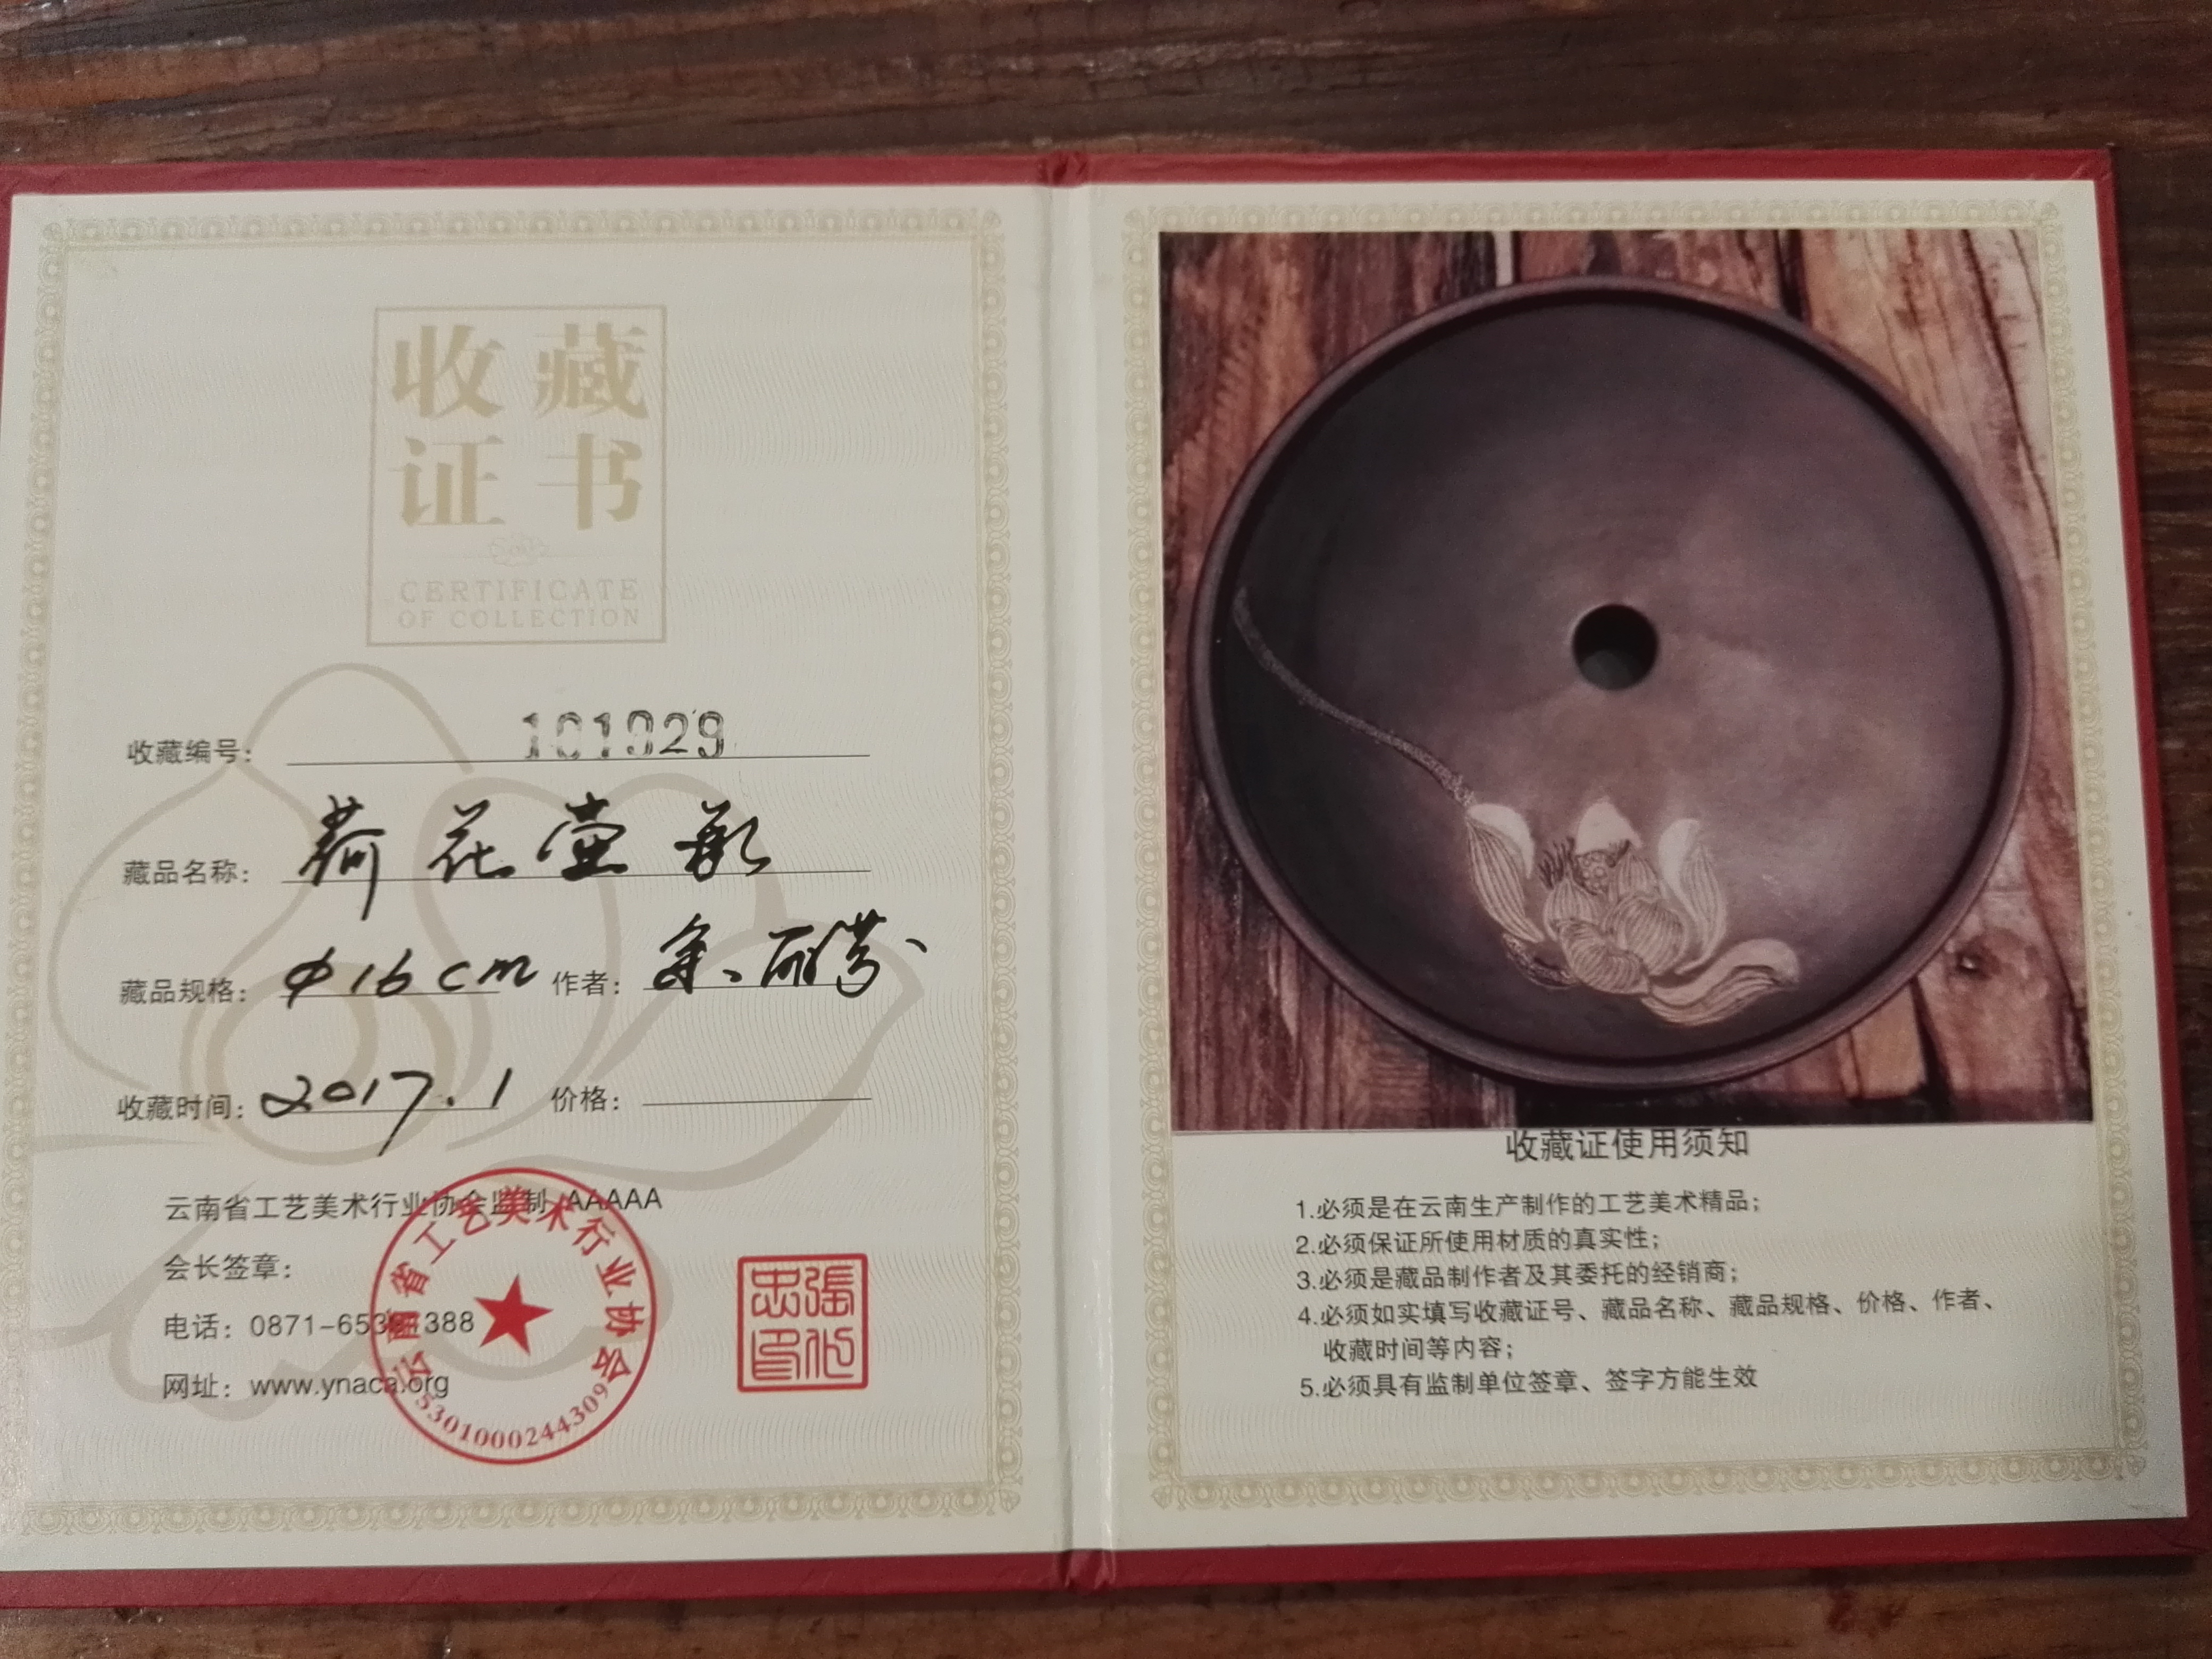 收藏
证书
CERTIFICATE
OF COLLECTION
收藏编号： 101929
藏品名称： 荷花壶承
藏品规格： φ16cm 作者：
收藏时间： 2017.1 价格：
云南省工艺美术行业协会监制 AAAAA
会长签章：
电话：0871-65 388
网址：www.ynaca.org
云南省工艺美术行业协会
5301000244309
收藏证使用须知
1.必须是在云南生产制作的工艺美术精品；
2.必须保证所使用材质的真实性；
3.必须是藏品制作者及其委托的经销商；
4.必须如实填写收藏证号、藏品名称、藏品规格、价格、作者、
收藏时间等内容；
5.必须具有监制单位签章、签字方能生效